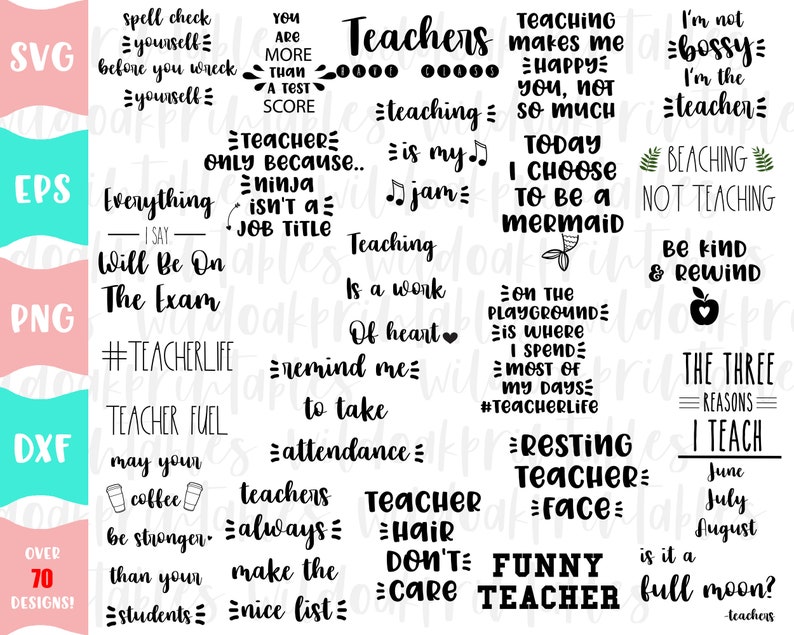 SVG
EPS
PNG
DXF
OVER
70
DESIGNS!
spell check
yourself
before you wreck
yourself
YOU
ARE
MORE
THAN
A TEST
SCORE
Teachers
HAVE CLASS
TEACHING
MAKES ME
HAPPY
YOU, NOT
SO MUCH
I'm not
bossy
I'm the
teacher
TEACHER
ONLY BECAUSE..
NINJA
ISN'T A
JOB TITLE
teaching
is my
jam
TODAY
I CHOOSE
TO BE A
MERMAID
BEACHING
NOT TEACHING
Everything
I SAY
Will Be On
The Exam
Teaching
Is a work
Of heart
BE KIND
& REWIND
#TEACHERLIFE
remind me
to take
attendance
ON THE
PLAYGROUND
IS WHERE
I SPEND
MOST OF
MY DAYS
#TEACHERLIFE
THE THREE
REASONS
I TEACH
June
July
August
TEACHER FUEL
may your
coffee
be stronger
than your
students
teachers
always
make the
nice list
TEACHER
HAIR
DON'T
CARE
RESTING
TEACHER
FACE
FUNNY
TEACHER
is it a
full moon?
-teachers
wildoakprintables